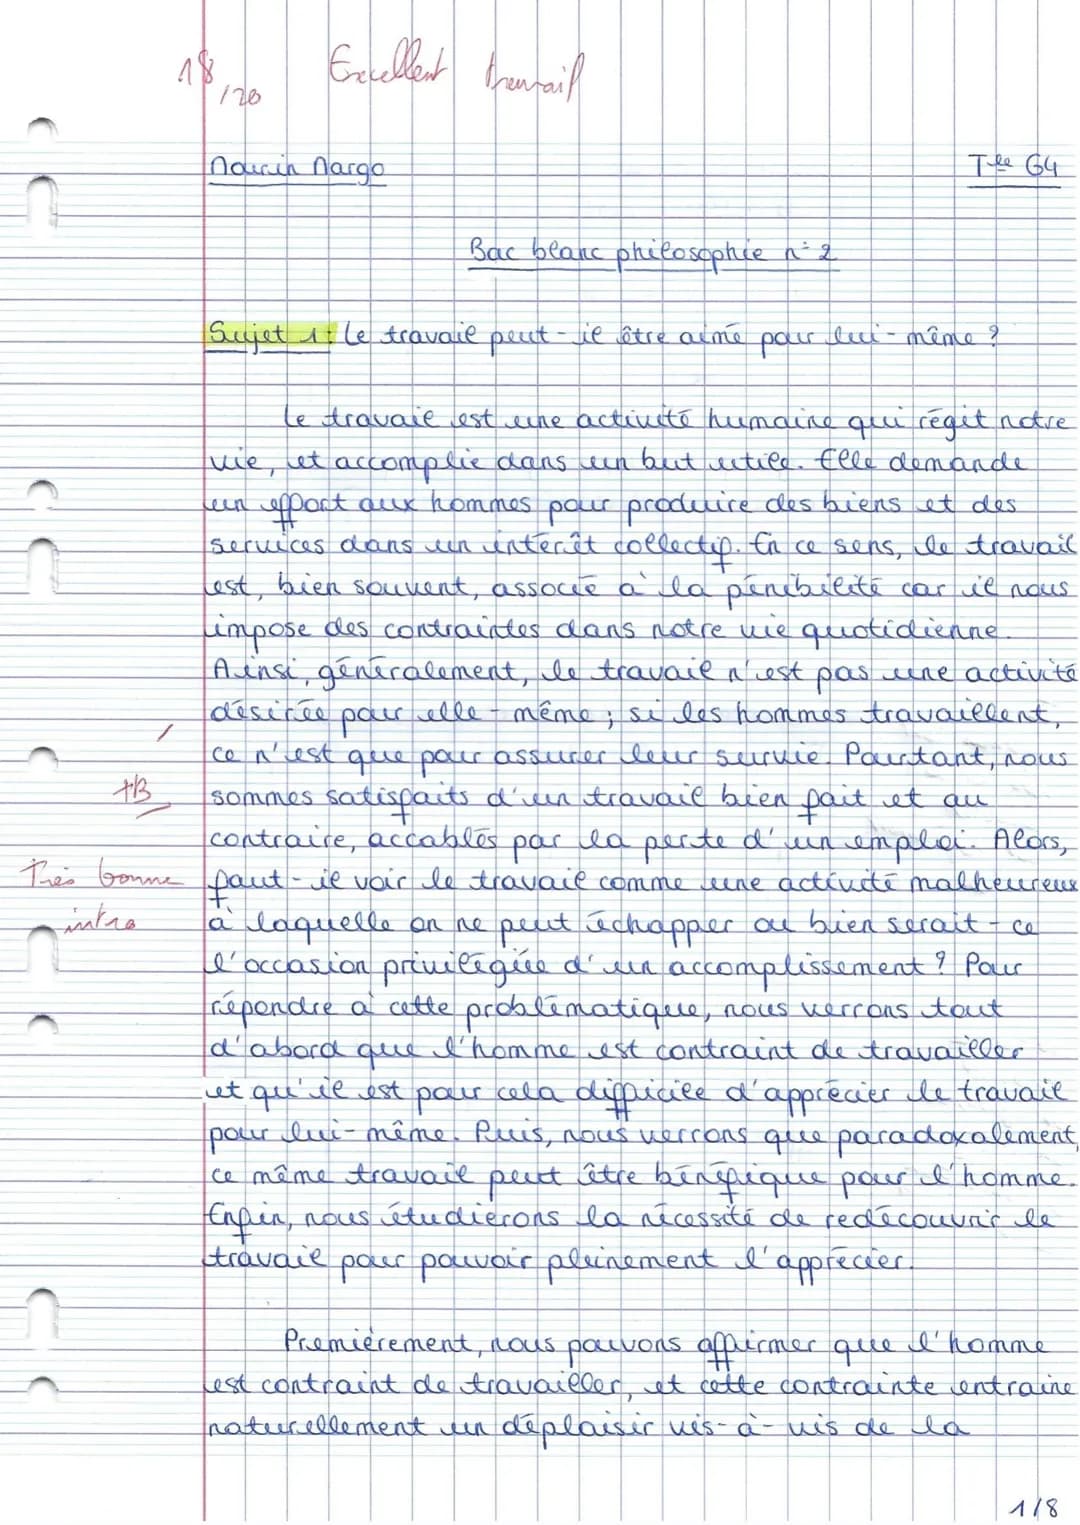 18/20 Excellent travail
Nourin Margo
Tle G4
Bac blanc philosophie n°2
Sujet 1: Le travail peut-il être aimé pour lui-même ?
Le travail est une activité humaine qui régit notre
vie, et accomplie dans un but utile. Elle demande
un effort aux hommes pour produire des biens et des
services dans un intérêt collectif. En ce sens, le travail
est, bien souvent, associé à la pénibilité car il nous
impose des contraintes dans notre vie quotidienne.
Ainsi, généralement, le travail n'est pas une activité
désirée pour elle-même ; si les hommes travaillent,
ce n'est que pour assurer leur survie. Pourtant, nous
TB
sommes satisfaits d'un travail bien fait et au
contraire, accablés par la perte d'un emploi. Alors,
Très bonne
intro
faut-il voir le travail comme une activité malheureux
à laquelle on ne peut échapper ou bien serait-ce
l'occasion privilégiée d'un accomplissement ? Pour
répondre à cette problématique, nous verrons tout
d'abord que l'homme est contraint de travailler
et qu'il est pour cela difficile d'apprécier le travail
pour lui-même. Puis, nous verrons que paradoxalement,
ce même travail peut être bénéfique pour l'homme.
Enfin, nous étudierons la nécessité de redécouvrir le
travail pour pouvoir pleinement l'apprécier.
Premièrement, nous pouvons affirmer que l'homme
est contraint de travailler, et cette contrainte entraine
naturellement un déplaisir vis-à-vis de la
1/8